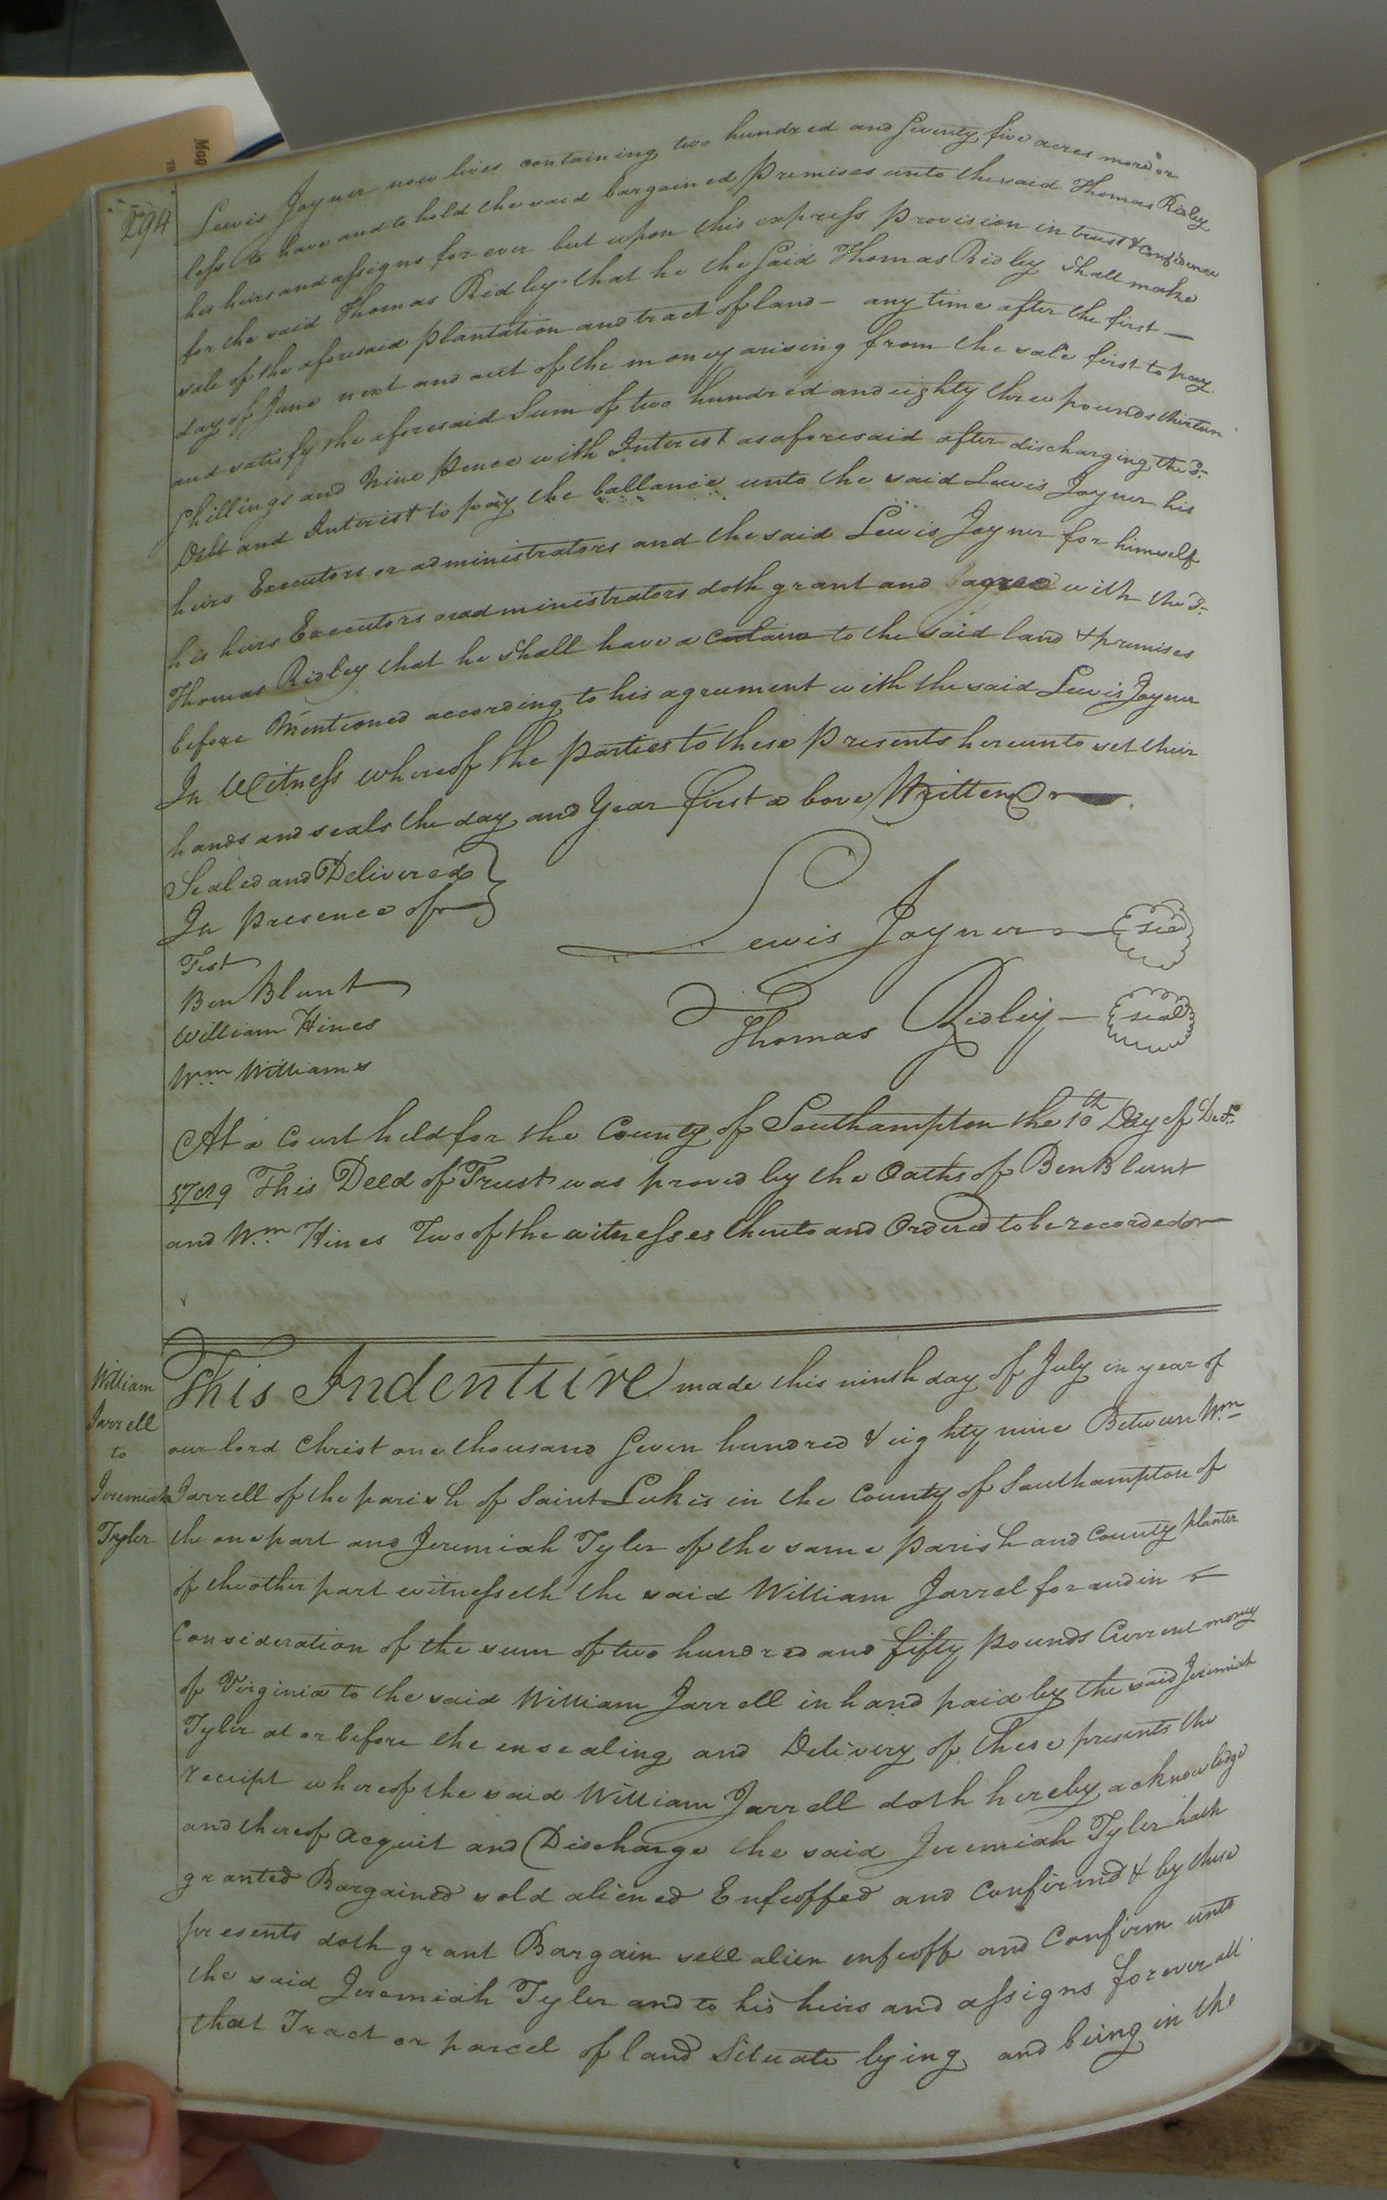 Mag
294
Lewis Joyner now lives containing two hundred and Seventy five acres more or
less to have and to hold the said bargained premises unto the said Thomas Ridley
his heirs and assigns for ever but upon this express provision in trust & Confidence
for the said Thomas Ridley that he the Said Thomas Ridley Shall make
sale of the aforesaid plantation and tract of land — any time after the first —
day of June next and out of the money arising from the sale first to pay
and satisfy the aforesaid Sum of two hundred and eighty three pounds thirteen
Shillings and Nine Pence with Interest as aforesaid after discharging the sd.
Debt and Interest to pay the ballance unto the said Lewis Joyner his
heirs Executors or administrators and the said Lewis Joyner for himself
his heirs Executors or administrators doth grant and agree with the sd.
Thomas Ridley that he shall have a certain to the said land & premises
before Mentioned according to his agrument with the said Lewis Joyner
In Witness whereof the parties to these presents hereunto set their
hands and seals the day and Year first above Written
Sealed and Delivered
In presence of
Lewis Joyner seal
Test
Ben Blunt
Thomas Ridley — seal
William Hines
Wm Williams
At a Court held for the County of Southampton the 10th Day of Decr.
1789 This Deed of Trust was proved by the Oaths of Ben Blunt
and Wm Hines Two of the witnesses thereto and Ordered to be recorded
William
Jarrell
to
Jeremiah
Tyler
This Indenture made this ninth day of July in year of
our lord Christ one thousand Seven hundred & eighty nine Between Wm
Jarrell of the parish of Saint Lukes in the County of Southampton of
the one part and Jeremiah Tyler of the same parish and County planter
of the other part witnesseth the said William Jarrel for and in
Consideration of the sum of two hundred and fifty pounds Current money
of Virginia to the said William Jarrell in hand paid by the said Jeremiah
Tyler at or before the ensealing and Delivery of these presents the
receipt whereof the said William Jarrell doth hereby acknowledge
and thereof acquit and Discharge the said Jeremiah Tyler hath
granted Bargained sold aliened Enfeoffed and Confirmd & by these
presents doth grant Bargain sell alien enfeoff and Confirm unto
the said Jeremiah Tyler and to his heirs and assigns forever all
that Tract or parcel of land Situate lying and being in the